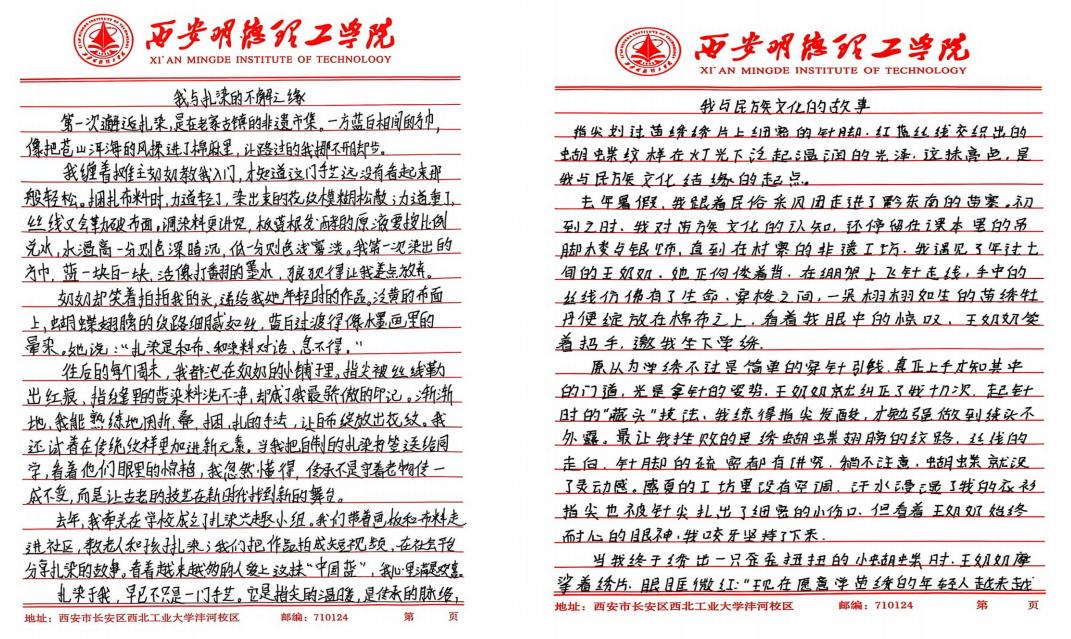 西安明德理工学院
XI'AN MINGDE INSTITUTE OF TECHNOLOGY
我与扎染的不解之缘
第一次邂逅扎染，是在老家古镇的非遗市集。一方蓝白相间的方巾，
像把苍山洱海的风揉进了棉麻里，让路过的我挪不开脚步。
我缠着摊主奶奶教我入门，才知道这门手艺远没有看起来那
般轻松。捆扎布料时，力道轻了，染出来的花纹模糊松散；力道重了，
丝线又会勒破布面。调染料更讲究，板蓝根发酵的原液要按比例
兑水，水温高一分则色深暗沉，低一分则色浅寡淡。我第一次染出的
方巾，蓝一块白一块，活像打翻的墨水，狼狈得让我差点放弃。
奶奶却笑着拍拍我的头，递给我她年轻时的作品。泛黄的布面
上，蝴蝶翅膀的纹路细腻如丝，蓝白过渡得像水墨画里的
晕染。她说：“扎染是和布、和染料对话，急不得。”
往后的每个周末，我都泡在奶奶的小铺子里。指尖被丝线勒
出红痕，指缝里的蓝染料洗不净，却成了我最骄傲的印记。渐渐
地，我能熟练地用折、叠、捆、扎的手法，让白布绽放出花纹。我
还试着在传统纹样里加进新元素。当我把自制的扎染书签送给同
学，看着他们眼里的惊艳，我忽然懂得，传承不是守着老物件一
成不变，而是让古老的技艺在新时代找到新的舞台。
去年，我牵头在学校成立了扎染兴趣小组。我们带着画板和布料走
进社区，教老人和孩子扎染；我们把作品拍成短视频，在社交平台
分享扎染的故事。看着越来越多的人爱上这抹“中国蓝”，我心里满是欢喜。
扎染于我，早已不只是一门手艺。它是指尖的温度，是传承的脉络，
地址：西安市长安区西北工业大学沣河校区 邮编：710124 第 页
西安明德理工学院
XI'AN MINGDE INSTITUTE OF TECHNOLOGY
我与民族文化的故事
指尖划过苗绣绣片上细密的针脚，红蓝丝线交织出的
蝴蝶纹样在灯光下泛起温润的光泽，这抹亮色，是
我与民族文化结缘的起点。
去年暑假，我跟着民俗采风团走进了黔东南的苗寨。初
到之时，我对苗族文化的认知，还停留在课本里的吊
脚楼与银饰，直到在村寨的非遗工坊，我遇见了年过七
旬的王奶奶。她正佝偻着背，在绷架上飞针走线，手中的
丝线仿佛有了生命，穿梭之间，一朵栩栩如生的苗绣牡
丹便绽放在棉布之上，看着我眼中的惊叹，王奶奶笑
着招手，邀我坐下学绣.
原以为学绣不过是简单的穿针引线，真正上手才知其中
的门道，光是拿针的姿势，王奶奶就纠正了我十几次，起针
时的“藏头”技法，我练得指尖发酸，才勉强做到线头不
外露。最让我挫败的是绣蝴蝶翅膀的纹路，丝线的
走向、针脚的疏密都有讲究，稍不注意，蝴蝶就没
了灵动感。盛夏的工坊里没有空调，汗水浸湿了我的衣衫
指尖也被针尖扎出了细密的小伤口，但看着王奶奶始终
耐心的眼神，我咬牙坚持了下来.
当我终于绣出一只歪歪扭扭的小蝴蝶时，王奶奶摩
挲着绣片，眼眶微红：“现在愿意学苗绣的年轻人越来越
地址：西安市长安区西北工业大学沣河校区 邮编：710124 第 页